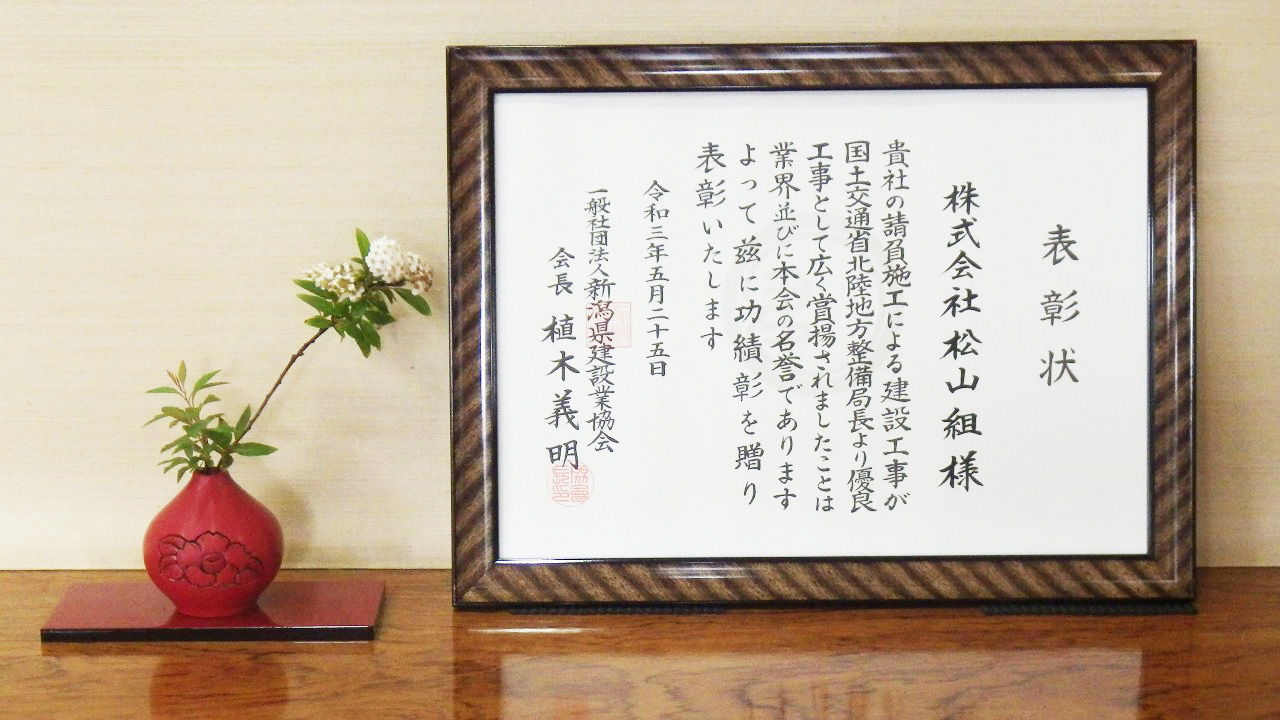 表彰状
株式会社松山組様
貴社の請負施工による建設工事が
国土交通省北陸地方整備局長より優良
工事として広く賞揚されましたことは
業界並びに本会の名誉であります
よって茲に功績彰を贈り
表彰いたします
令和三年五月二十五日
一般社団法人新潟県建設業協会
会長 植木義明